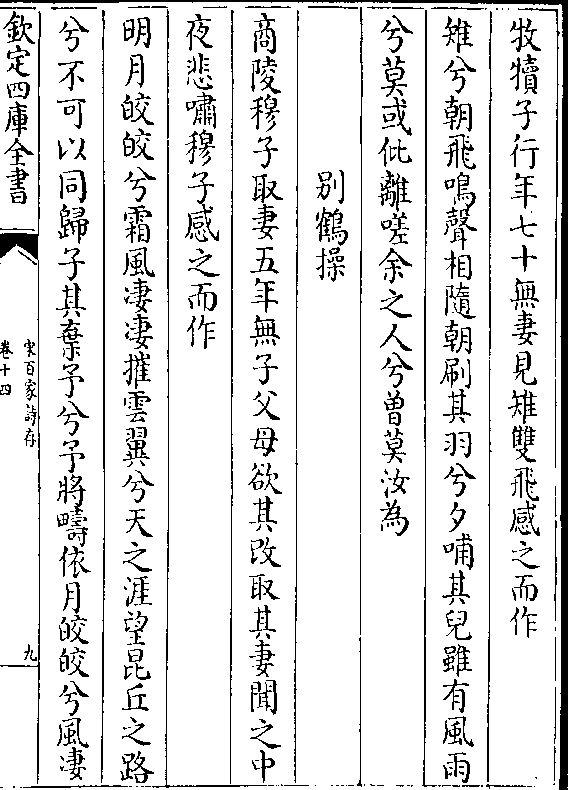 牧犢子行年七十無妻見雉雙飛感之而作
雉兮朝飛鳴聲相隨朝刷其羽兮夕哺其兒雖有風雨
兮莫或仳離嗟余之人兮曽莫汝為
別鶴操
商陵穆子取妻五年無子父母欲其改取其妻聞之中
夜悲嘯穆子感之而作
明月皎皎兮霜風凄凄摧雲翼兮天之涯望昆丘之路
兮不可以同歸子其棄予兮予將疇依月皎皎兮風凄
欽定四庫全書
宋百家詩存
卷十四
九